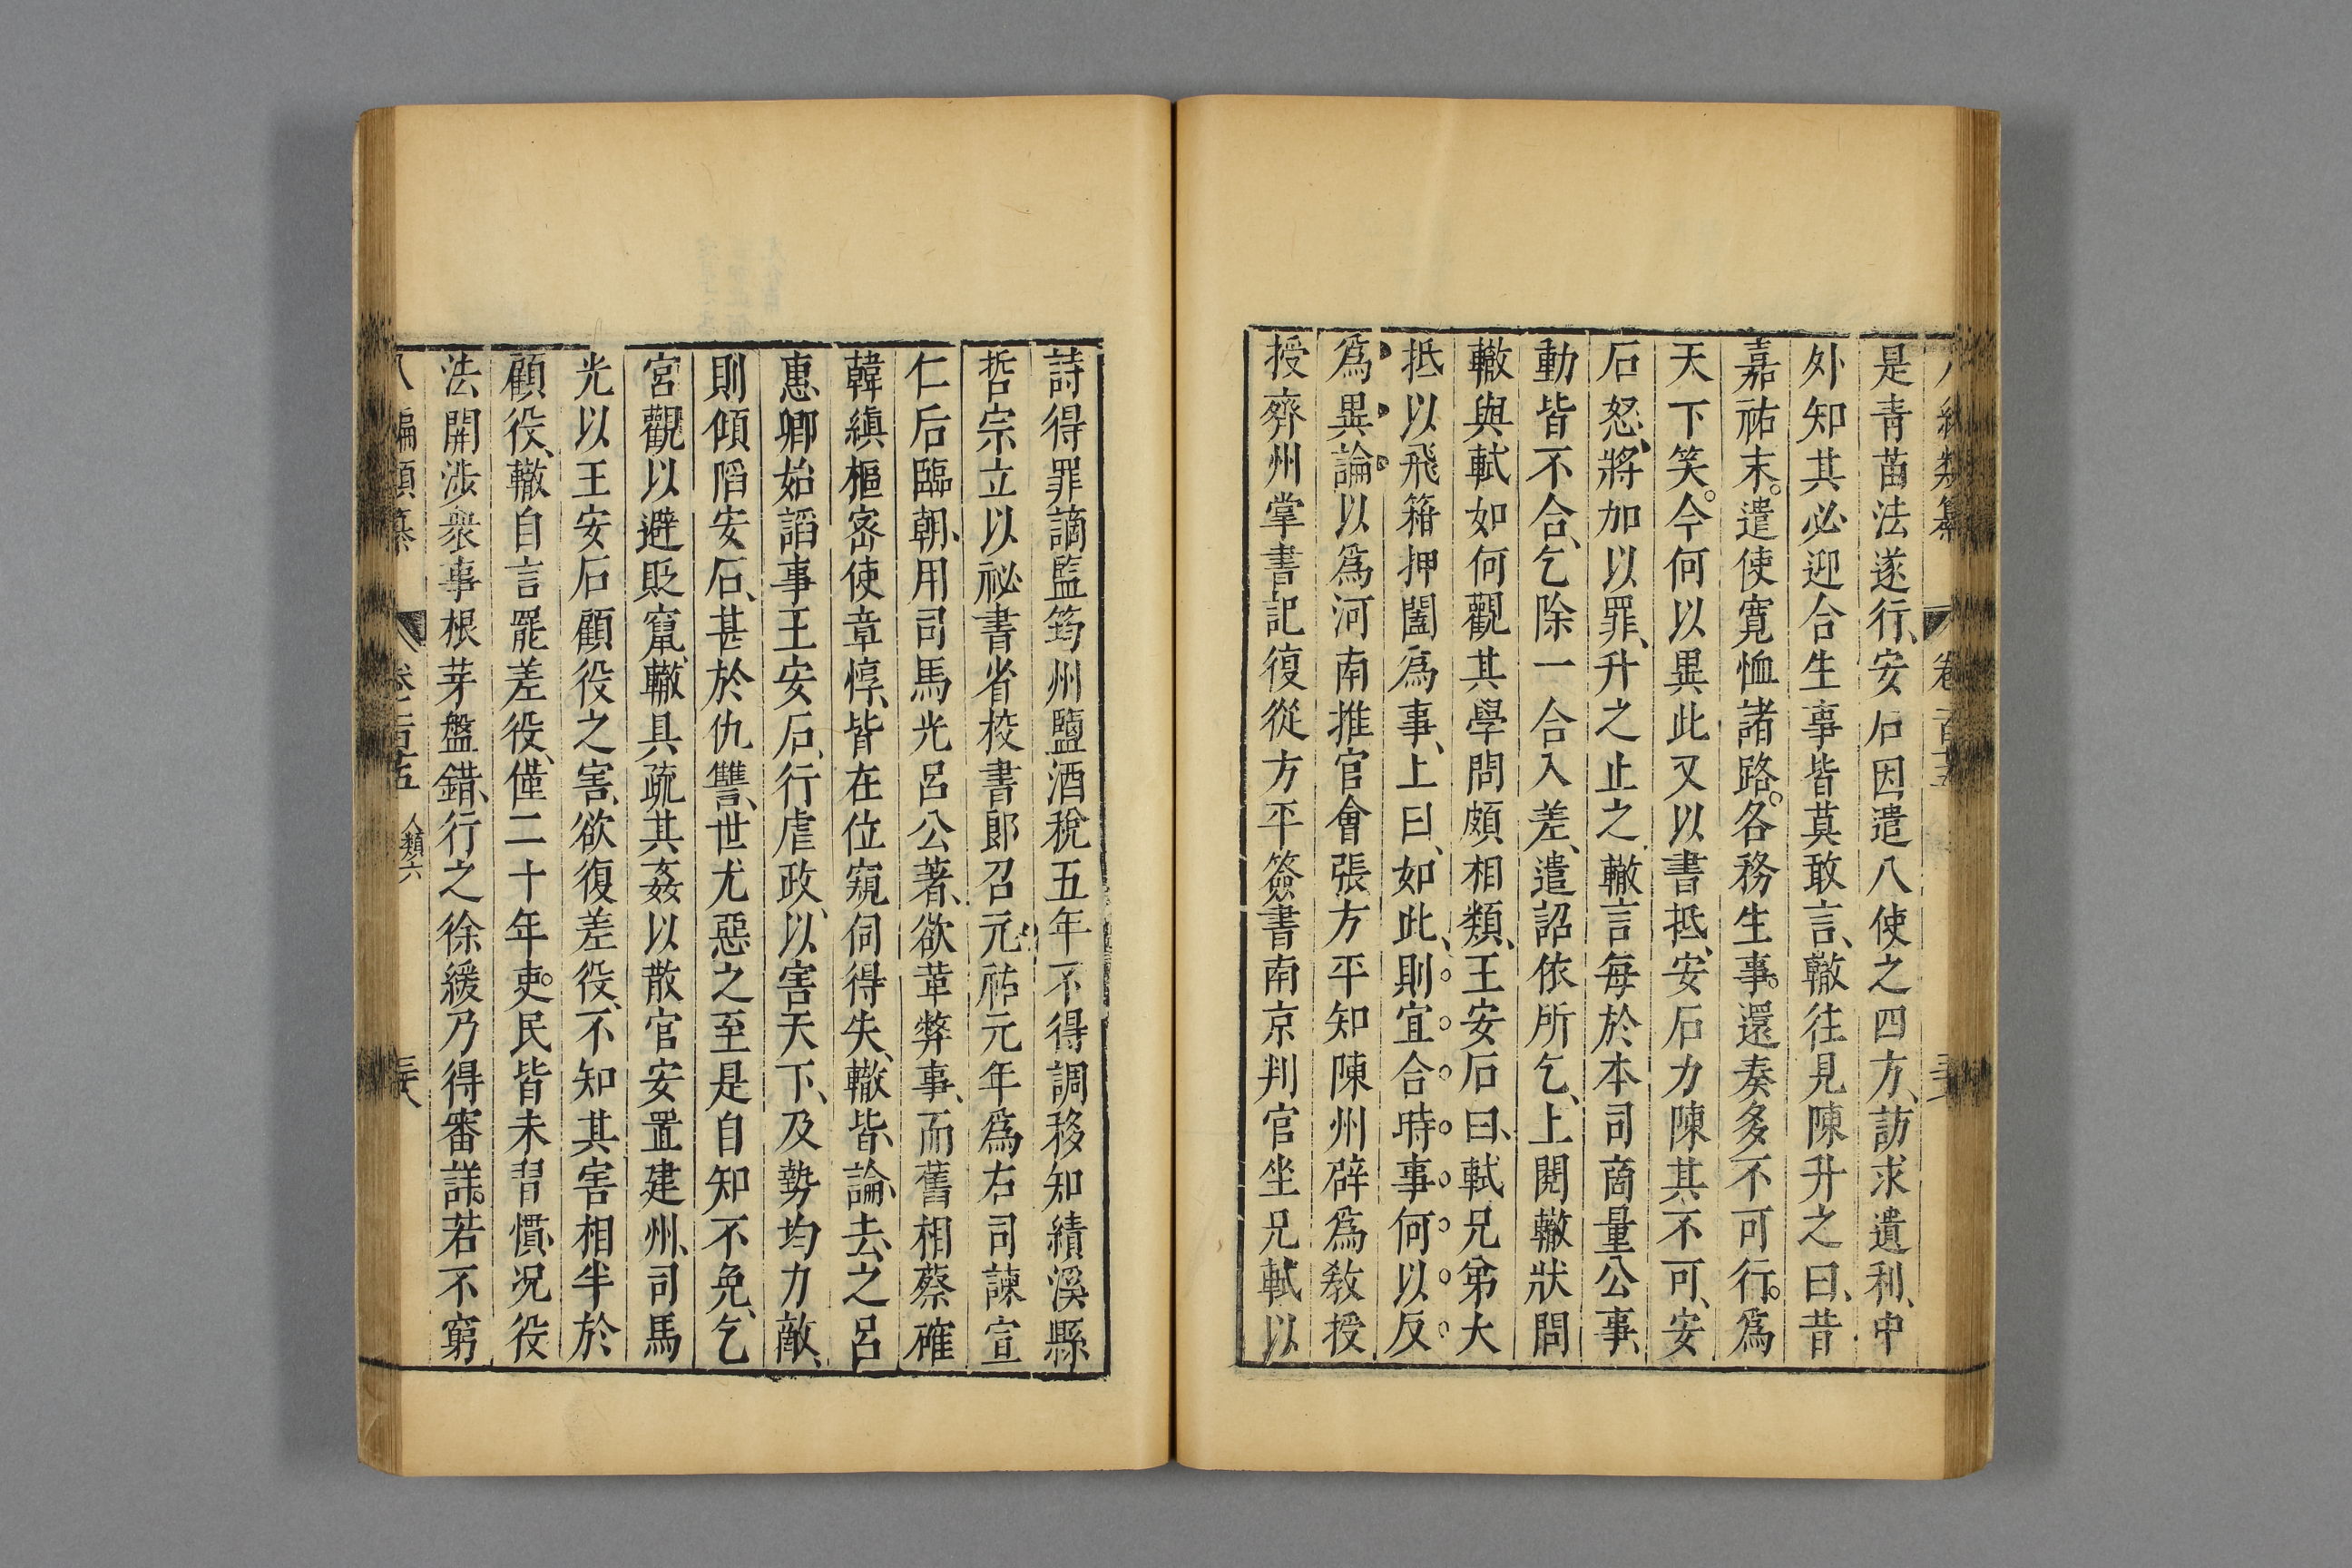 是靑苗法遂行、安石因遣八使之四方、訪求遺利、中
外知其必迎合生事皆莫敢言、轍往見陳升之曰、昔
嘉祐末。遣使寬恤諸路。各務生事。還奏多不可行。爲
天下笑。今何以異此又以書抵、安石力陳其不可、安
石怒、將加以罪、升之止之、轍言每於本司商量公事、
動皆不合、乞除一合入差、遣詔依所乞、上閱轍狀問
轍與軾如何觀其學問頗相類、王安石曰、軾兄弟大
抵以飛箝押闔爲事、上曰、如此、則宜合時事何以反
爲異論以爲河南推官會張方平知陳州辟爲敎授
授齊州掌書記復從方平簽書南京判官坐兄軾以
詩得罪謫監筠州鹽酒稅五年不得調移知績溪縣
哲宗立以祕書省校書郎召元祐元年爲右司諫宣
仁后臨朝、用司馬光呂公著、欲革弊事、而舊相蔡確
韓縝樞密使章惇、皆在位窺伺得失、轍皆、論去、之呂
惠卿始諂事王安石、行虐政、以害天下、及勢均力敵、
則傾陷安石、甚於仇讐、世尤惡之至是自知不免、乞
宮觀以避貶竄、轍具疏其姦以散官安置建州、司馬
光以王安石顧役之害、欲復差役、不知其害相半於
顧役、轍自言罷差役、僅二十年。吏民皆未習慣、况役
法開涉衆事根芽盤錯、行之徐緩乃得審詳。若不窮
八編類纂 卷之一百五 人類六 三十八